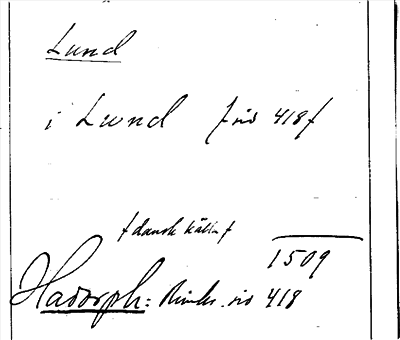 Lund
i Lund [sid 418]
[dansk källa]
1509
Hadorph: Rimkr. sid 418